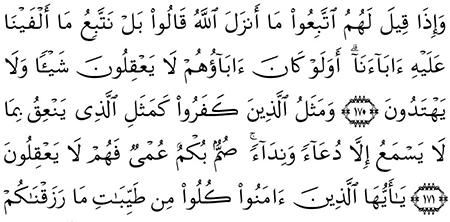 وَإِذَا قِيلَ لَهُمُ ٱتَّبِعُوا۟ مَآ أَنزَلَ ٱللَّهُ قَالُوا۟ بَلْ نَتَّبِعُ مَآ أَلْفَيْنَا
عَلَيْهِ ءَابَآءَنَآ ۗ أَوَلَوْ كَانَ ءَابَآؤُهُمْ لَا يَعْقِلُونَ شَيْـًٔا وَلَا
يَهْتَدُونَ ﴿١٧٠﴾ وَمَثَلُ ٱلَّذِينَ كَفَرُوا۟ كَمَثَلِ ٱلَّذِى يَنْعِقُ بِمَا
لَا يَسْمَعُ إِلَّا دُعَآءً وَنِدَآءً ۚ صُمٌّۢ بُكْمٌ عُمْىٌ فَهُمْ لَا يَعْقِلُونَ
﴿١٧١﴾ يَـٰٓأَيُّهَا ٱلَّذِينَ ءَامَنُوا۟ كُلُوا۟ مِن طَيِّبَـٰتِ مَا رَزَقْنَـٰكُمْ